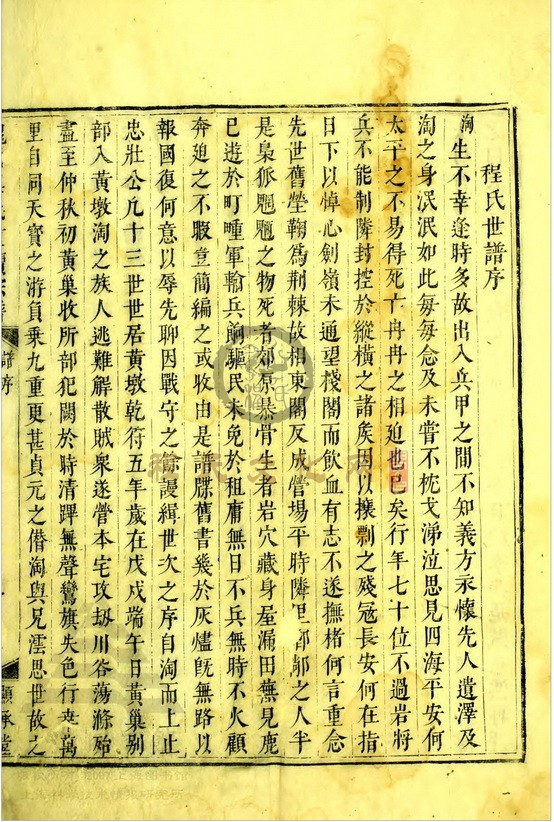 程氏世譜序
淘生不幸逢時多故出入兵甲之間不知義方永懷先人遺澤及
淘之身泯泯如此每每念及未嘗不枕戈涕泣思見四海平安何
太平之不易得死亡冉冉之相迫也已矣行年七十位不過岩將
兵不能制隣封控於縱橫之諸矦因以攘剽之殘冦長安何在指
日下以悼心劍嶺未通望棧閣而飲血有志不遂撫楮何言重念
先世舊塋鞠為荆棘故相東閣反成營場平時隣里鄰之人半
是梟狐魍魎之物死者郊原暴骨生者岩穴藏身屋漏田蕪見鹿
巳遊於町畽軍輸兵餉驅民未免於租庸無日不兵無時不火顧
奔廹之不暇豈簡編之或收由是譜牒舊書幾於灰燼旣無路以
報國復何意以辱先聊因戰守之餘謾緝世次之序自淘而上止
忠壯公凢十三世世居黃墩乾符五年歲在戊戌端午日黃巢别
部入黃墩淘之族人逃難解散賊衆遂營本宅攻刼川谷蕩滌殆
盡至仲秋初黃巢收所部犯闕於時清蹕無聲鸞旗失色行萬
里自同天寳之游負乗九重更甚貞元之僭淘與兄澐思世故之
譜序
顧承堂